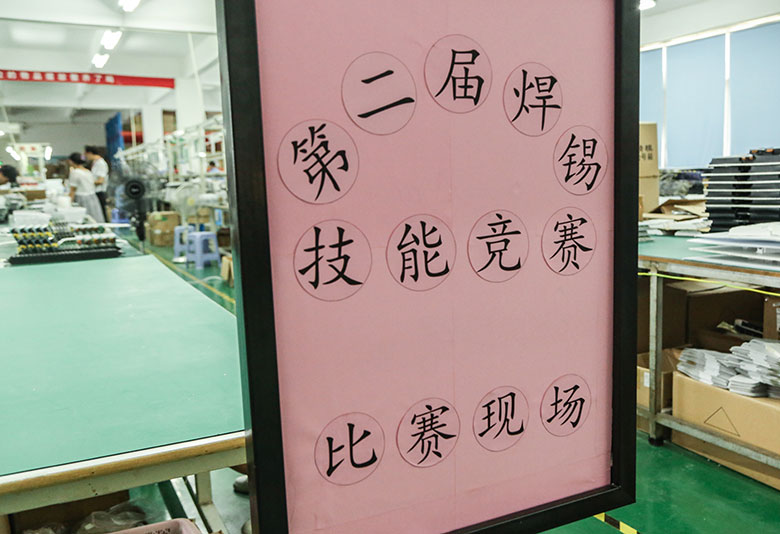 第二届焊锡
技能竞赛
比赛现场